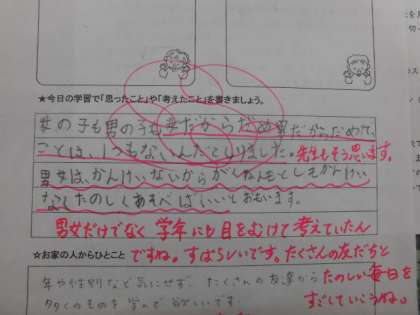 ★今日の学習で「思ったこと」や「考えたこと」を書きましょう。
女の子も男の子も女だからだめ男だからだめて、
ことは、1つもないんだとしりました。先生もそう思います。
男女は、かんけいないからがくねんもとしもかんけい
なしたのしくあそべばいいとおもいます。
男女だけでなく学年にも目をむけて考えていたん
ですね。すばらしいです。たくさんの友だちと
たのしい毎日を
すごしていこうね。
★お家の人からひとこと
年や性別など気にせず、たくさんの友達から
多くのものを学んで欲しいです。